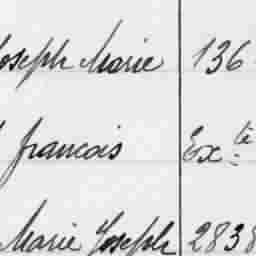 Joseph Marie 136
francois Ex.té
Marie Joseph 2838